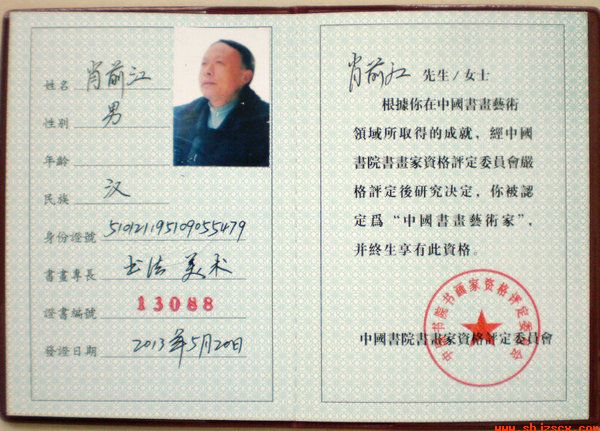 姓名 肖前江
性别 男
年齡
民族 汉
身份證號 510121195109055479
書畫專長 书法 美术
證書編號 13088
發證日期 2013年5月20日
肖前江 先生/女士
根據你在中國書畫藝術
領域所取得的成就，經中國
書院書畫家資格評定委員會嚴
格評定後研究决定，你被認
定爲“中國書畫藝術家”，
并終生享有此資格。
中国书院书画家资格评定委员会
中國書院書畫家資格評定委員會
www.shjzscx.com